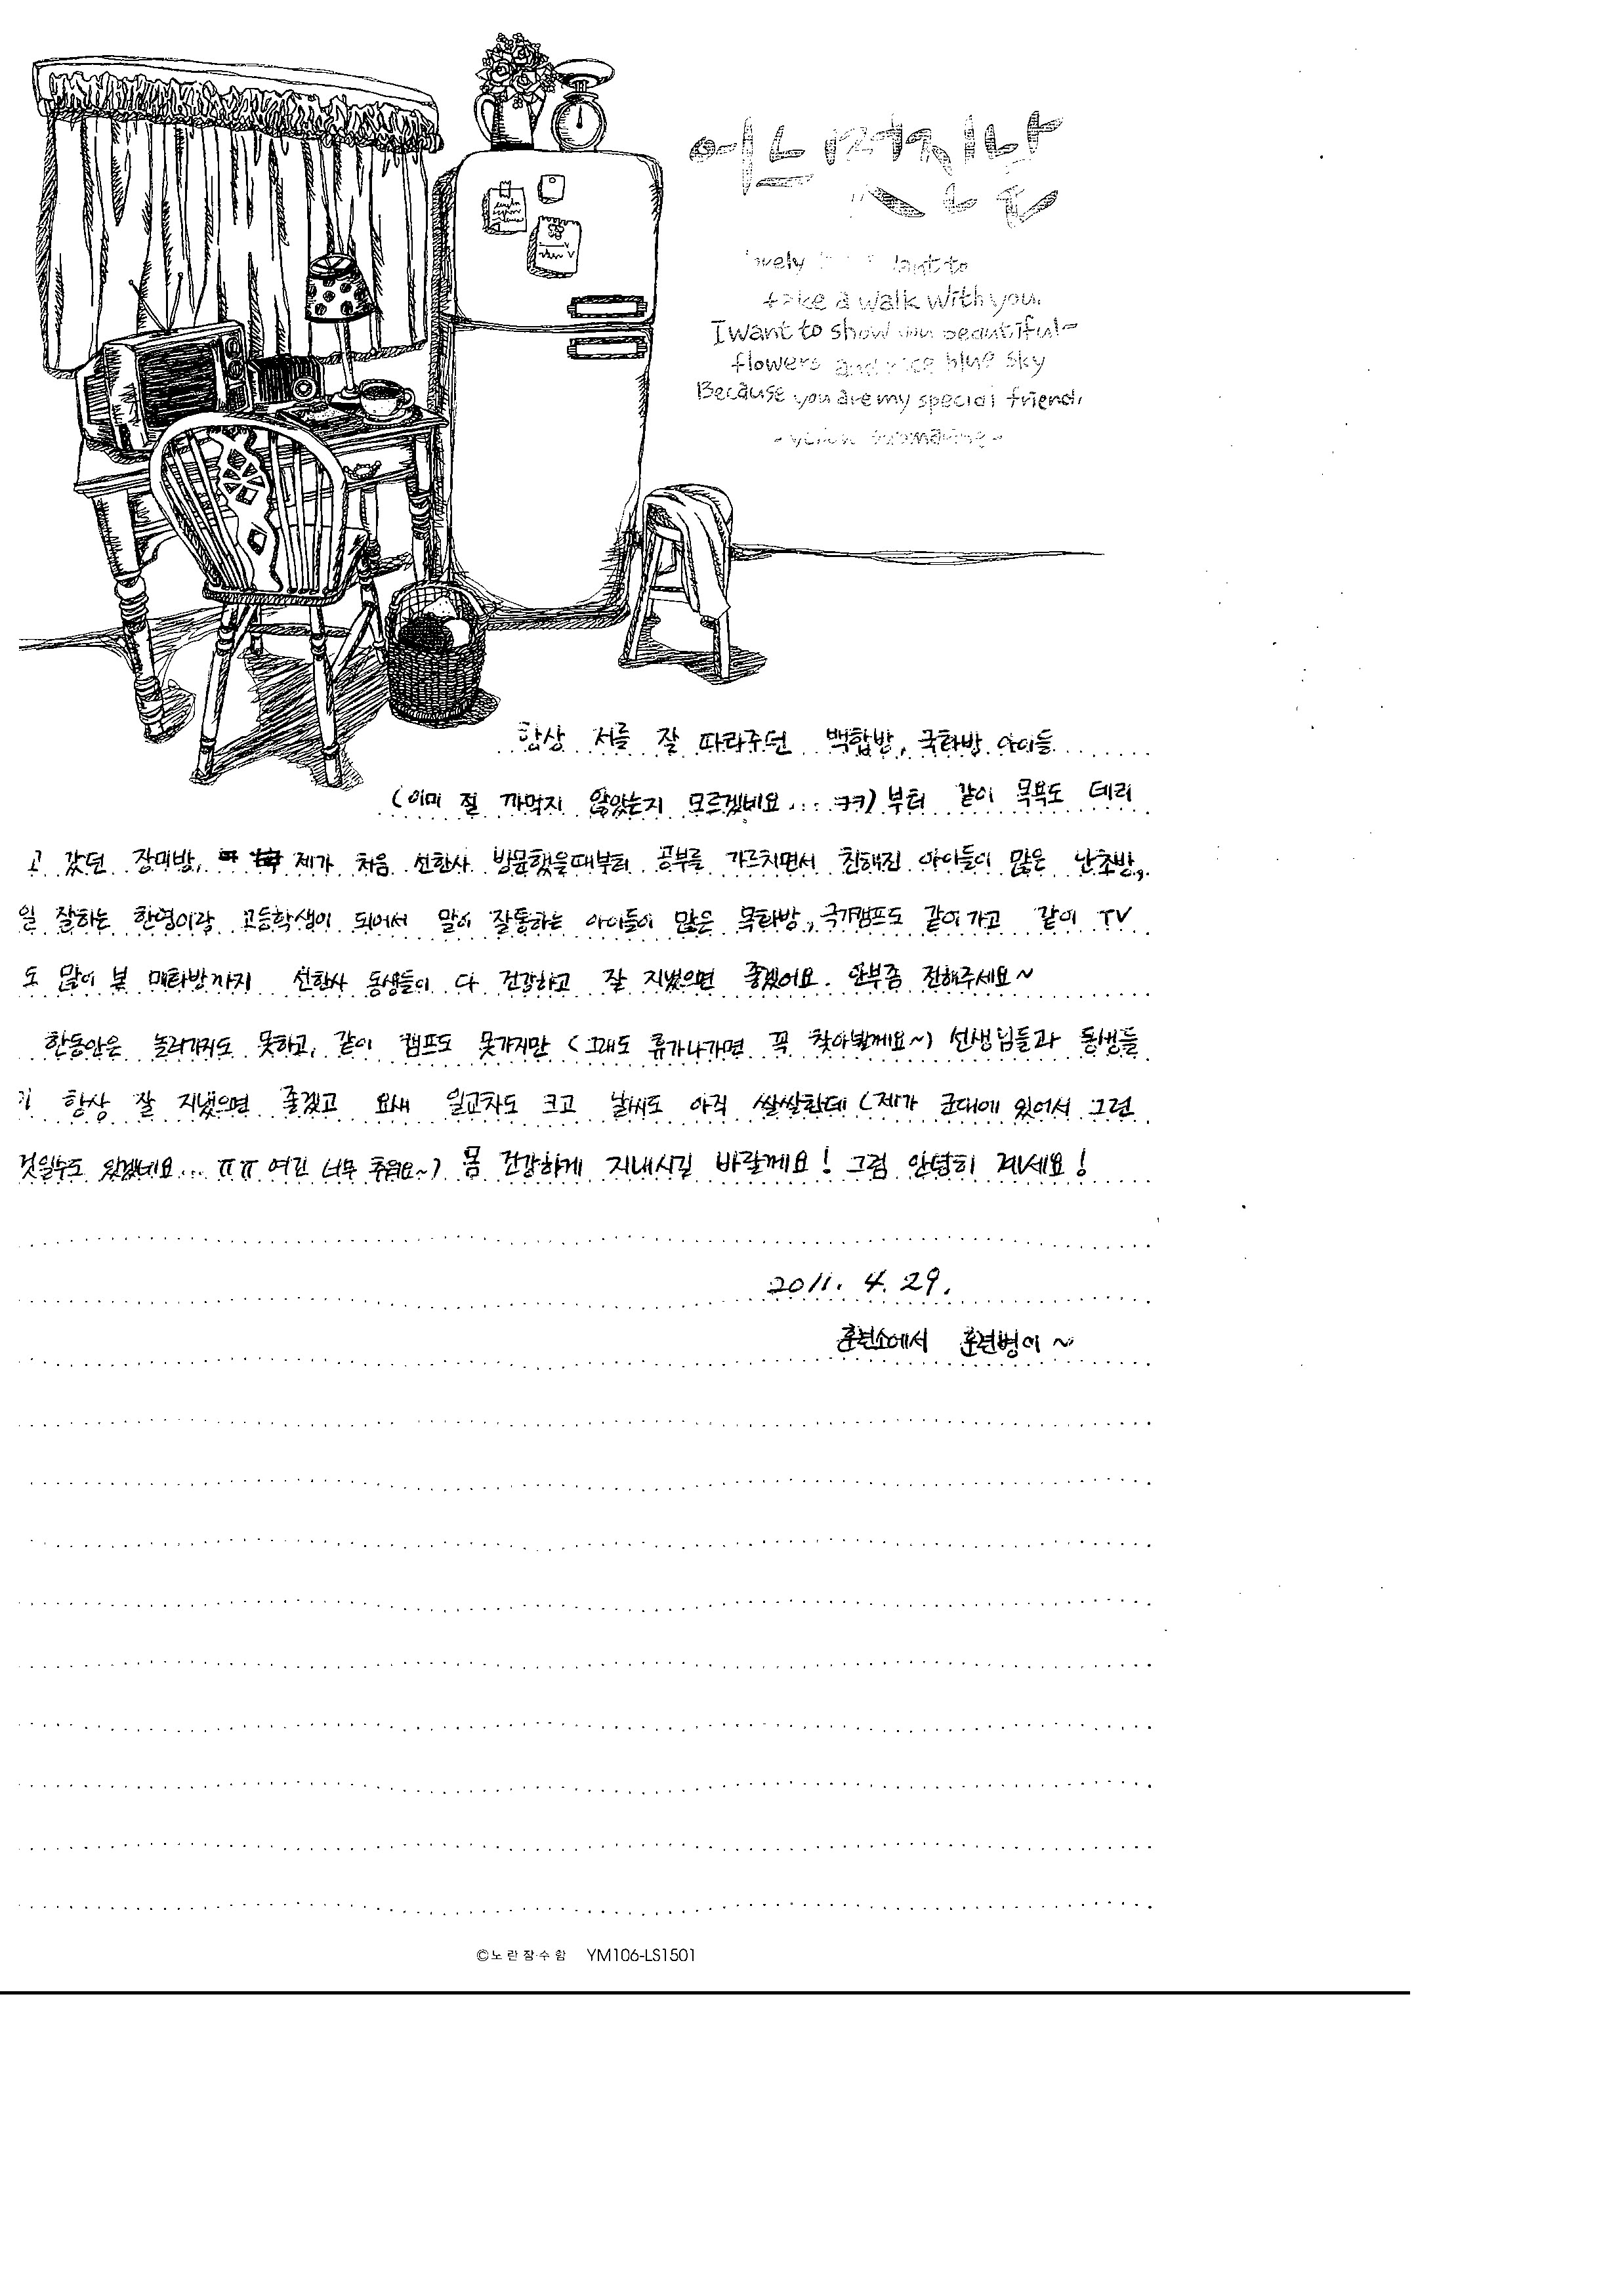 어느 행복한 날
오후
lovely want to
take a walk with you.
I want to show you beautiful
flowers and nice blue sky
Because you are my special friend.
- yellow submarine -
항상 저를 잘 따라주던 백합방, 국화방 아이들
(이미 절 까먹지 않았는지 모르겠네요.... ㅋㅋ) 부터 같이 목욕도 데리
고 갔던 장미방, 제가 처음 선한사 방문했을때부터 공부를 가르치면서 친해진 아이들이 많은 난초방,
일 잘하는 한영이랑 고등학생이 되어서 말이 잘통하는 아이들이 많은 목화방, 국가캠프도 같이가고 같이 TV
도 많이 본 매화방까지 선한사 동생들이 다 건강하고 잘 지냈으면 좋겠어요. 안부좀 전해주세요~
한동안은 놀러가지도 못하고, 같이 캠프도 못가지만 (그래도 휴가나가면 꼭 찾아뵐게요~) 선생님들과 동생들
이 항상 잘 지냈으면 좋겠고 요새 일교차도 크고 날씨도 아직 쌀쌀한데 (제가 군대에 있어서 그런
것일수도 있겠네요... ㅠㅠ 여긴 너무 추워요~) 몸 건강하게 지내시길 바랄께요! 그럼 안녕히 계세요!
2011. 4. 29.
훈련소에서 훈련병이 ~
©노란잠수함 YM106-LS1501